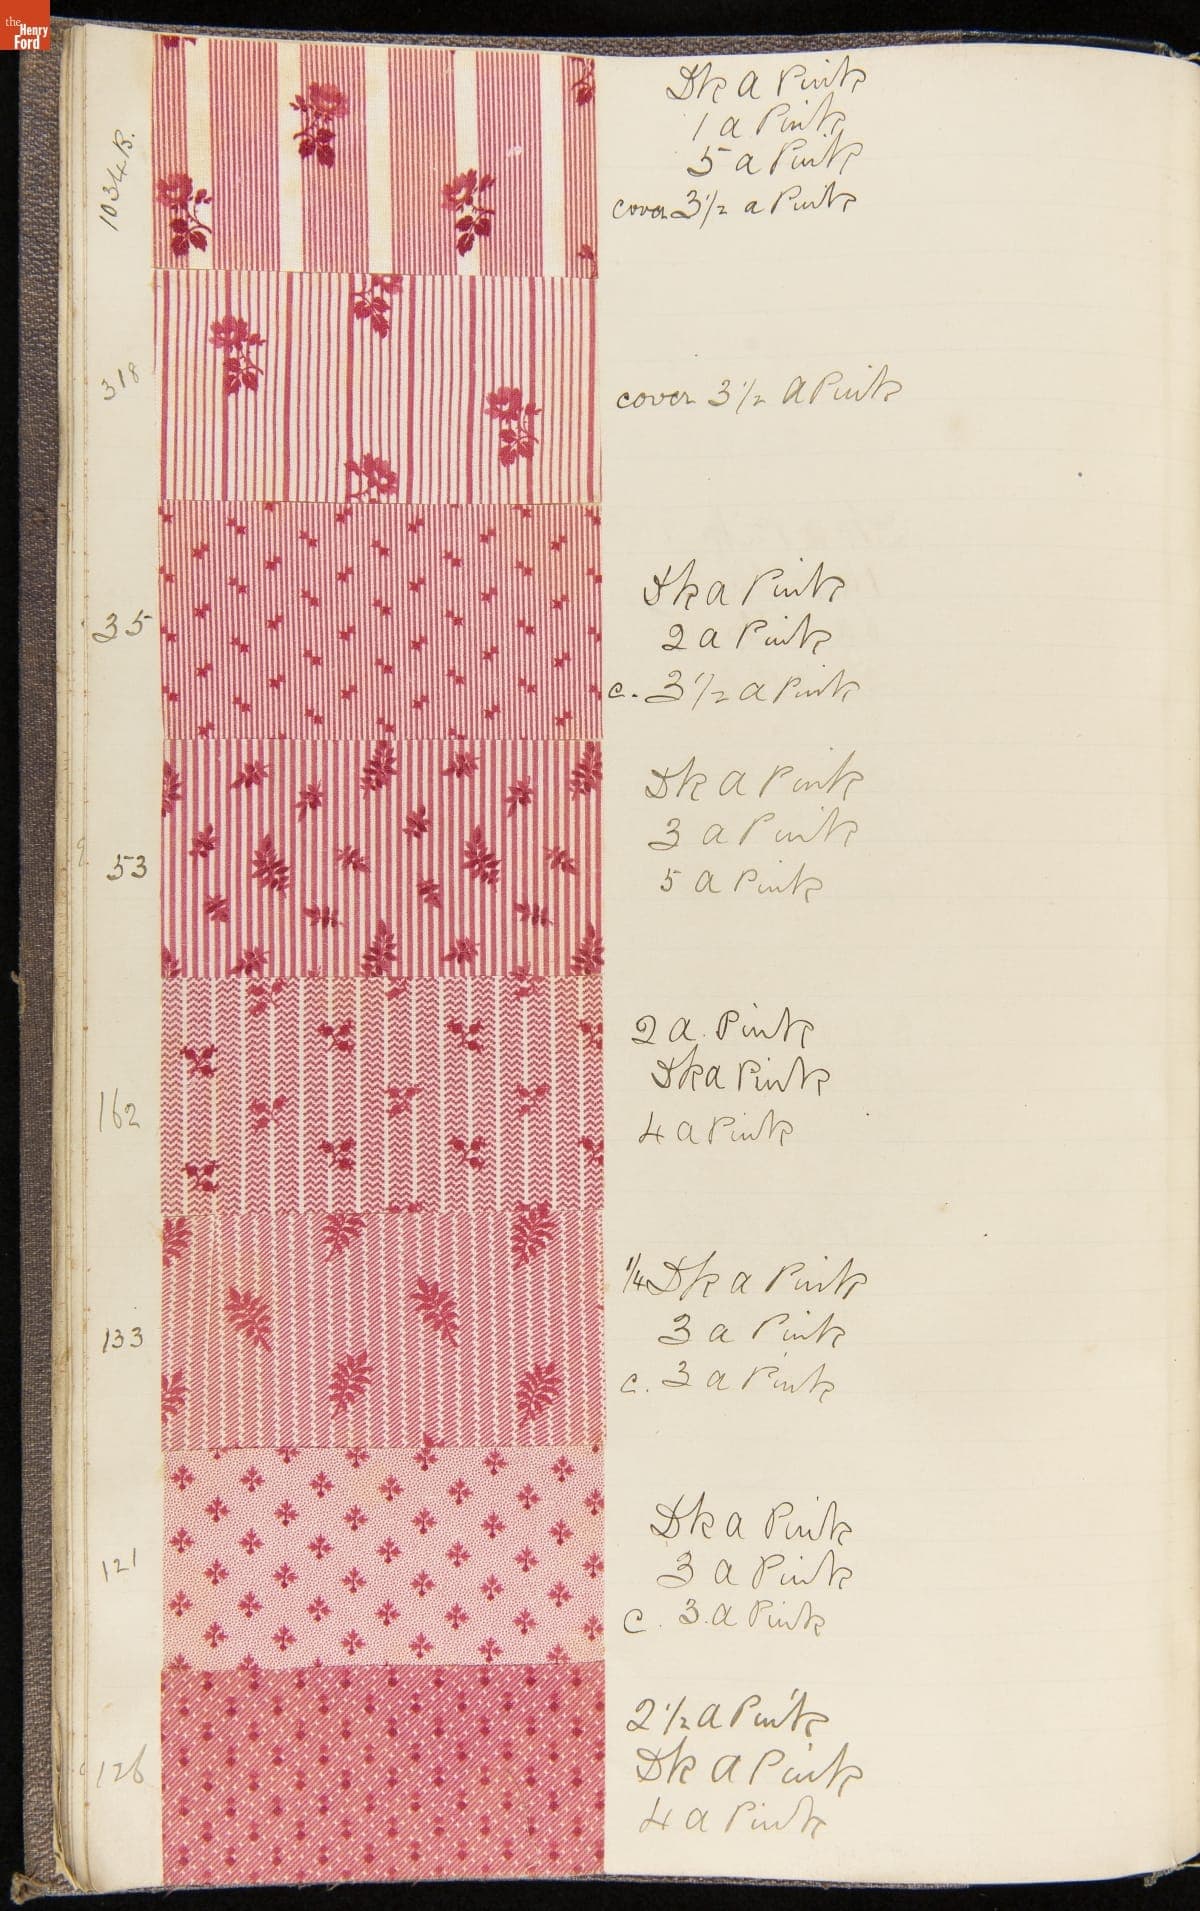 the
Henry
Ford
1034B.
Dk a Pink
1 a Pink
5 a Pink
cover 3 1/2 a Pink
318
cover 3 1/2 a Pink
35
Dk a Pink
2 a Pink
c. 3 1/2 a Pink
53
Dk a Pink
3 a Pink
5 a Pink
162
2 a Pink
Dk a Pink
4 a Pink
133
1/4 Dk a Pink
3 a Pink
c. 3 a Pink
121
Dk a Pink
3 a Pink
c. 3 a Pink
126
2 1/2 a Pink
Dk a Pink
4 a Pink